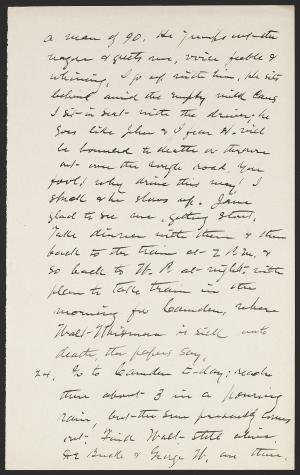 a man of 90. He jumps out the
wagon & greets me, voice feeble &
whining, I go up with him, he sits
behind amid the empty milk cans
I sit in seat with the driver; he
goes like John & I fear H. will
be bounced to death or thrown
out over the rough road. You
fool! why drive this way? I
speak & he slows up. Jane
glad to see me, getting stout.
Take dinner with them & then
back to the train at 2 P.M. &
so back to W. P. at night, with
plan to take train in the
morning for Camden, where
Walt Whitman is sick unto
death, the papers say.
24. Go to Camden to-day; reach
there about 3 in a pouring
rain, but the sun presently comes
out. Find Walt still alive.
Dr Bucke & George W. are there.